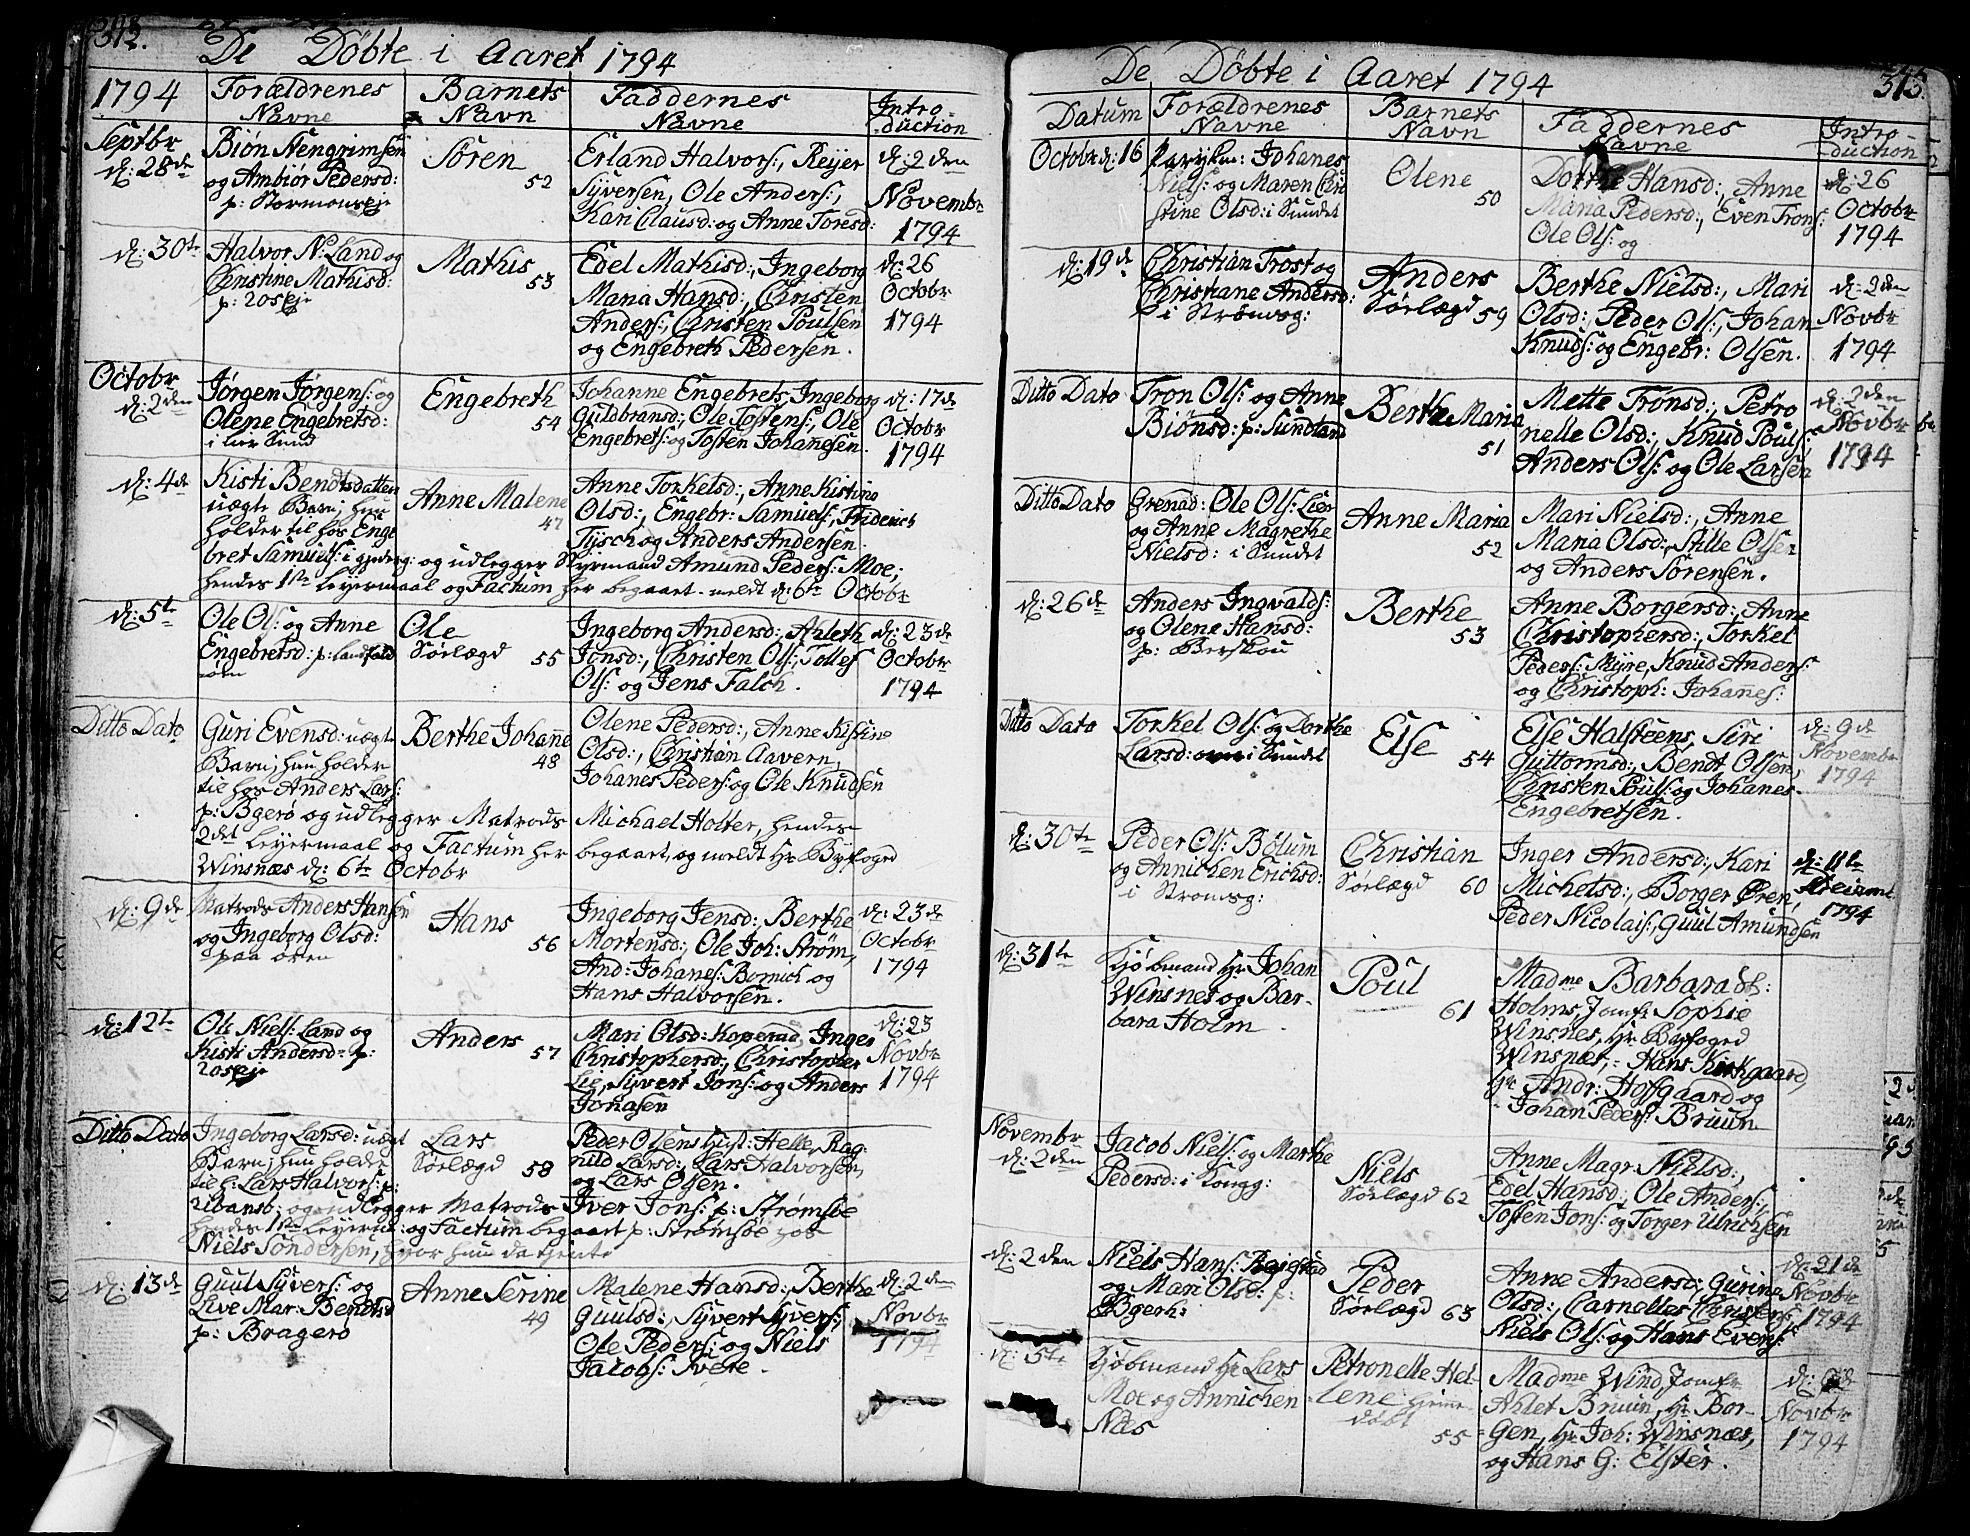 312.
De Döbte i Aaret 1794
1794
Forældrenes
Navne
Barnets
Navn
Faddernes
Navne
Intro-
duction
Septbr
d: 28de
Biön
og Ambiör Pedersd:
p: Stormonseje
Sören
52
Erland Halvors:, Reyer
Syversen, Ole Anders:,
Kari Clausd: og Anne Toresd:
d: 2den
Novembr
1794
d: 30te
Halvor N: Land og
Christine Mathisd:
p: Roseje
Mathis
53
Edel Mathisd:, Ingeborg
Maria Hansd:, Christen
Anders:, Christen Poulsen
og Engebreth Pedersen.
d: 26
Octobr
1794
Octobr
d: 2den
Jörgen Jörgens: og
Olene Engebretsd:
Engebreth
54
Johanne Engebrets, Ingeborg
Guldbransd:, Ole Tostens:, Ole
Engebrets: og Tosten Johanesen.
d: 17de
Octobr
1794
d: 4de
Kisti Bendtsdatter
uægte Barn; hun
holder til hos Enge
bret Samuels: i og udlegger Styrmand Amund Peders: Moe;
hendes 1ste Leyermaal og Factum her begaaet. meldt d: 6te Octobr
Anne Malene
47
Anne Torkelsd:, Anne Kistine
Olsd:, Engebr: Samuels:, Friderich
Tysch og Anders Andersen.
d: 5te
Ole Ols: og Anne
Engebretsd: p: Landfald
Ole
Sörlægd 55
Ingeborg Andersd:, Ahleth
Jonsd:, Christen Ols:, Tollef
Ols: og Jens Falch.
d: 23de
Octobr
1794
Ditto Dato
Guri Evensd: uægte
Barn; hun holder
til hos Anders Lars:
p: Bgerö og udlegger Matrods Michael Holter, hendes
2det Leyermaal og Factum her begaaet, og meldt Hr Byfoged
Winsnæs d: 6te Octobr
Berthe Johane
48
Olene Pedersd:, Anne Kistine
Olsd:, Christian Aavern,
Johanes Peders: og Ole Knudsen
d: 9de
Matrods Anders Hansen
og Ingeborg Olsd:
paa Ören
Hans
56
Ingeborg Jensd:, Berthe
Mortensd:, Ole Joh: Ström,
And: Johanes: Bornich og
Hans Halvorsen.
d: 23de
Octobr
1794
d: 12te
Ole Niels: Land og
Kisti Andersd: p:
Roseje
Anders
57
Mari Olsd: Koperud, Inger
Christophersd:, Christopher
Lie, Syvert Jons: og Anders
Jonasen
d: 23
Novbr
1794
Ditto Dato
Ingeborg Larsd: uægt
Barn; hun holder
til h: Lars Halvors: p:
Ribansb: og udlegger Matrods Iver Jons: p: Strömsöe
hendes 1ste Leyerm: og Factum begaaet p: Strömsöe hos
Niels Söndersen, hvor hun da tjente
Lars
Sörlægd 58
Peder Olsens Hust: Helle, Rag-
nild Larsd:, Lars Halvorsen,
og Lars Olsen.
d: 13de
Guul Syvers: og
Live Mar: Bendtsd
p: Bragerö
Anne Serine
49
Malene Hansd:, Berthe
Guulsd:, Syvert Syvers:,
Ole Peders: og Niels
Jacobs: Svere.
d: 2den
Novbr
1794
313.
De Döbte i Aaret 1794
Datum
Forældrenes
Navne
Barnets
Navn
Faddernes
Navne
Intro-
duction
Octobr d: 16
Parykm: Johanes
Niels: og Maren Chri
stine Olsd: i Sundet
Olene
50
Dorthe Hansd:, Anne
Maria Pedersd:, Even Trons:
Ole Ols: og
d: 26
Octobr
1794
d: 19de
Christian Trost og
Christiane Andersd:
i Strömsog:
Anders
Sörlægd 59
Berthe Nielsd:, Mari
Olsd:, Peder Ols:, Johan
Knuds: og Engebr: Olsen.
d: 2den
Novbr
1794
Ditto Dato
Tron Ols: og Anne
Biönsd: p: Sundland
Berthe Maria
51
Mette Tronsd:, Petro
nelle Olsd:, Knud Pouls:
Anders Ols: og Ole Larsen
d: 2den
Novbr
1794
Ditto Dato
Grenad: Ole Ols: Lier
og Anne Magrethe
Nielsd: i Sundet
Anne Maria
52
Mari Nielsd:, Anne
Maria Olsd:, Olsen
og Anders Sörensen.
d: 26de
Anders Ingvalds:
og Olene Hansd:
p: Berskou
Berthe
53
Anne Borgersd:, Anne
Christophersd:, Torkel
Peders: Myre, Knud Anders:
og Christoph: Johanes:
Ditto Dato
Torkel Ols: og Dorthe
Larsd: i Sundet
Else
54
Else Halsteens, Siri
Guttormsd:, Bendt Olsen,
Christen Pouls: og Johanes
Engebretsen.
d: 9de
Novembr
1794
d: 30te
Peder Ols: Bölum
og Annichen Erichsd:
i Strömsg:
Christian
Sörlægd 60
Inger Andersd:, Kari
Michelsd:, Borger Ören,
Peder Nicolais:, Guul Amundsen
d: 11te
1794
d: 31te
Kjöbmand Hr Johan
Winsnes og Bar-
bara Holm
Poul
61
Madme Barbara
Holms, Jomfr Sophie
Winsnes, Hr Byfoged
Winsnæs, - Hans Kirkgaard,
Hr Andr: Hofgaard og
- Johan Peders: Bruun
Novembr
d: 2den
Jacob Niels: og Marthe
Pedersd: i Kongg:
Niels
Sörlægd 62
Anne Magr: Nielsd:,
Edel Hansd:, Ole Anders:,
Tosten Jons: og Torger Ulrichsen
d: 2den
Niels Hans:
og Mari Olsd: p:
Bgerh:
Peder
Sörlægd 63
Anne Andersd:, Gurine
Olsd:, Carnelles Christens:,
Niels Ols: og Hans Evens:
d: 21de
Novbr
1794
d: 5te
Kjöbmand Hr Lars
Moe og Annichen
Næs
Petronelle Hel-
lene hjemme
döbt
55
Madme Wind, Jomfr
Ahlet Bruun, Hr Bor-
gen, Hr Joh: Winsnæs,
og Hans G: Elster.
Novbr
1794